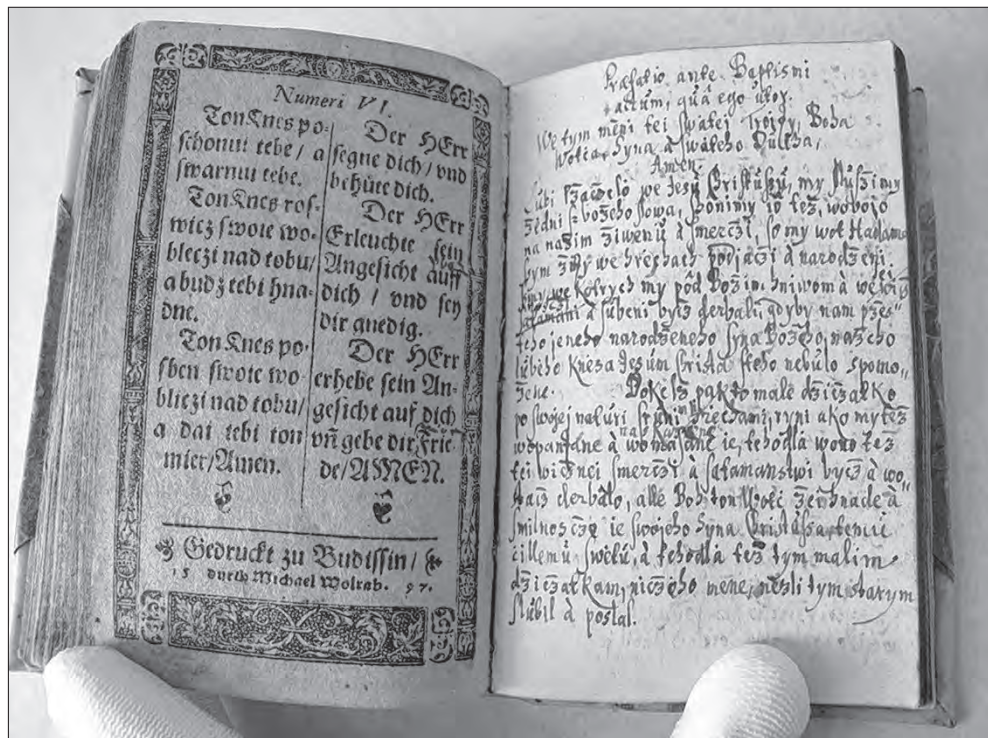 Numeri VI.
Ton Knes po-
schonuu tebe / a
swarnuu tebe.
Ton Knes ros-
wicz swote wo-
bleczi nad tobu/
a budz tebi hna-
dne.
Ton Knes po-
sben swote wo-
bliczi nad tobu/
a dai tebi ton
mier/Amen.
Der HErr
segne dich / vnd
behüte dich.
Der HErr
Erleuchte sein
Angesicht auff
dich / vnd sey
dir gnedig.
Der HErr
erhebe sein An-
gesicht auf dich
vñ gebe dir Frie-
de/AMEN.
Gedruckt zu Budissin/
15 durch Michael Wolrab. 97.
Præfatio ante Baptismi
actum, quâ ego utor.
We tym meni tei swatej Troizy, Boha
Wotca, Syna à swateho Ducha,
Amen.
Lubi we Jesu Christußu, my
z bożeho słowa, tez, wobojo
na naszim ziwenu à smerczi, so my wot Hadama
sym we hrechach podjaczi à narodzeni:
we kotrych my pôd Bożim hniwom à
à subeni bycz derbalu gdyby nam pzes-
teho jeneho narodzeneho Syna Bożeho, naszeho
lubeho Knesa Jesum Christa steho nebulo spomo-
żene. Dokelz pak to male dziczatko
po swojej naturi hrechami, ryni ako my tez
à ie, tehodla wono tez
tei wicznei smerczi à satamanstwi bycz à wo-
derbalo, alle Boh ton Wotc à
ie swojeho Syna Christußa, temu
cillemu swetu, à tehodla tez tym malim
dziczatkam, niczeho mene, nezli tym starym
slubil à poslal.